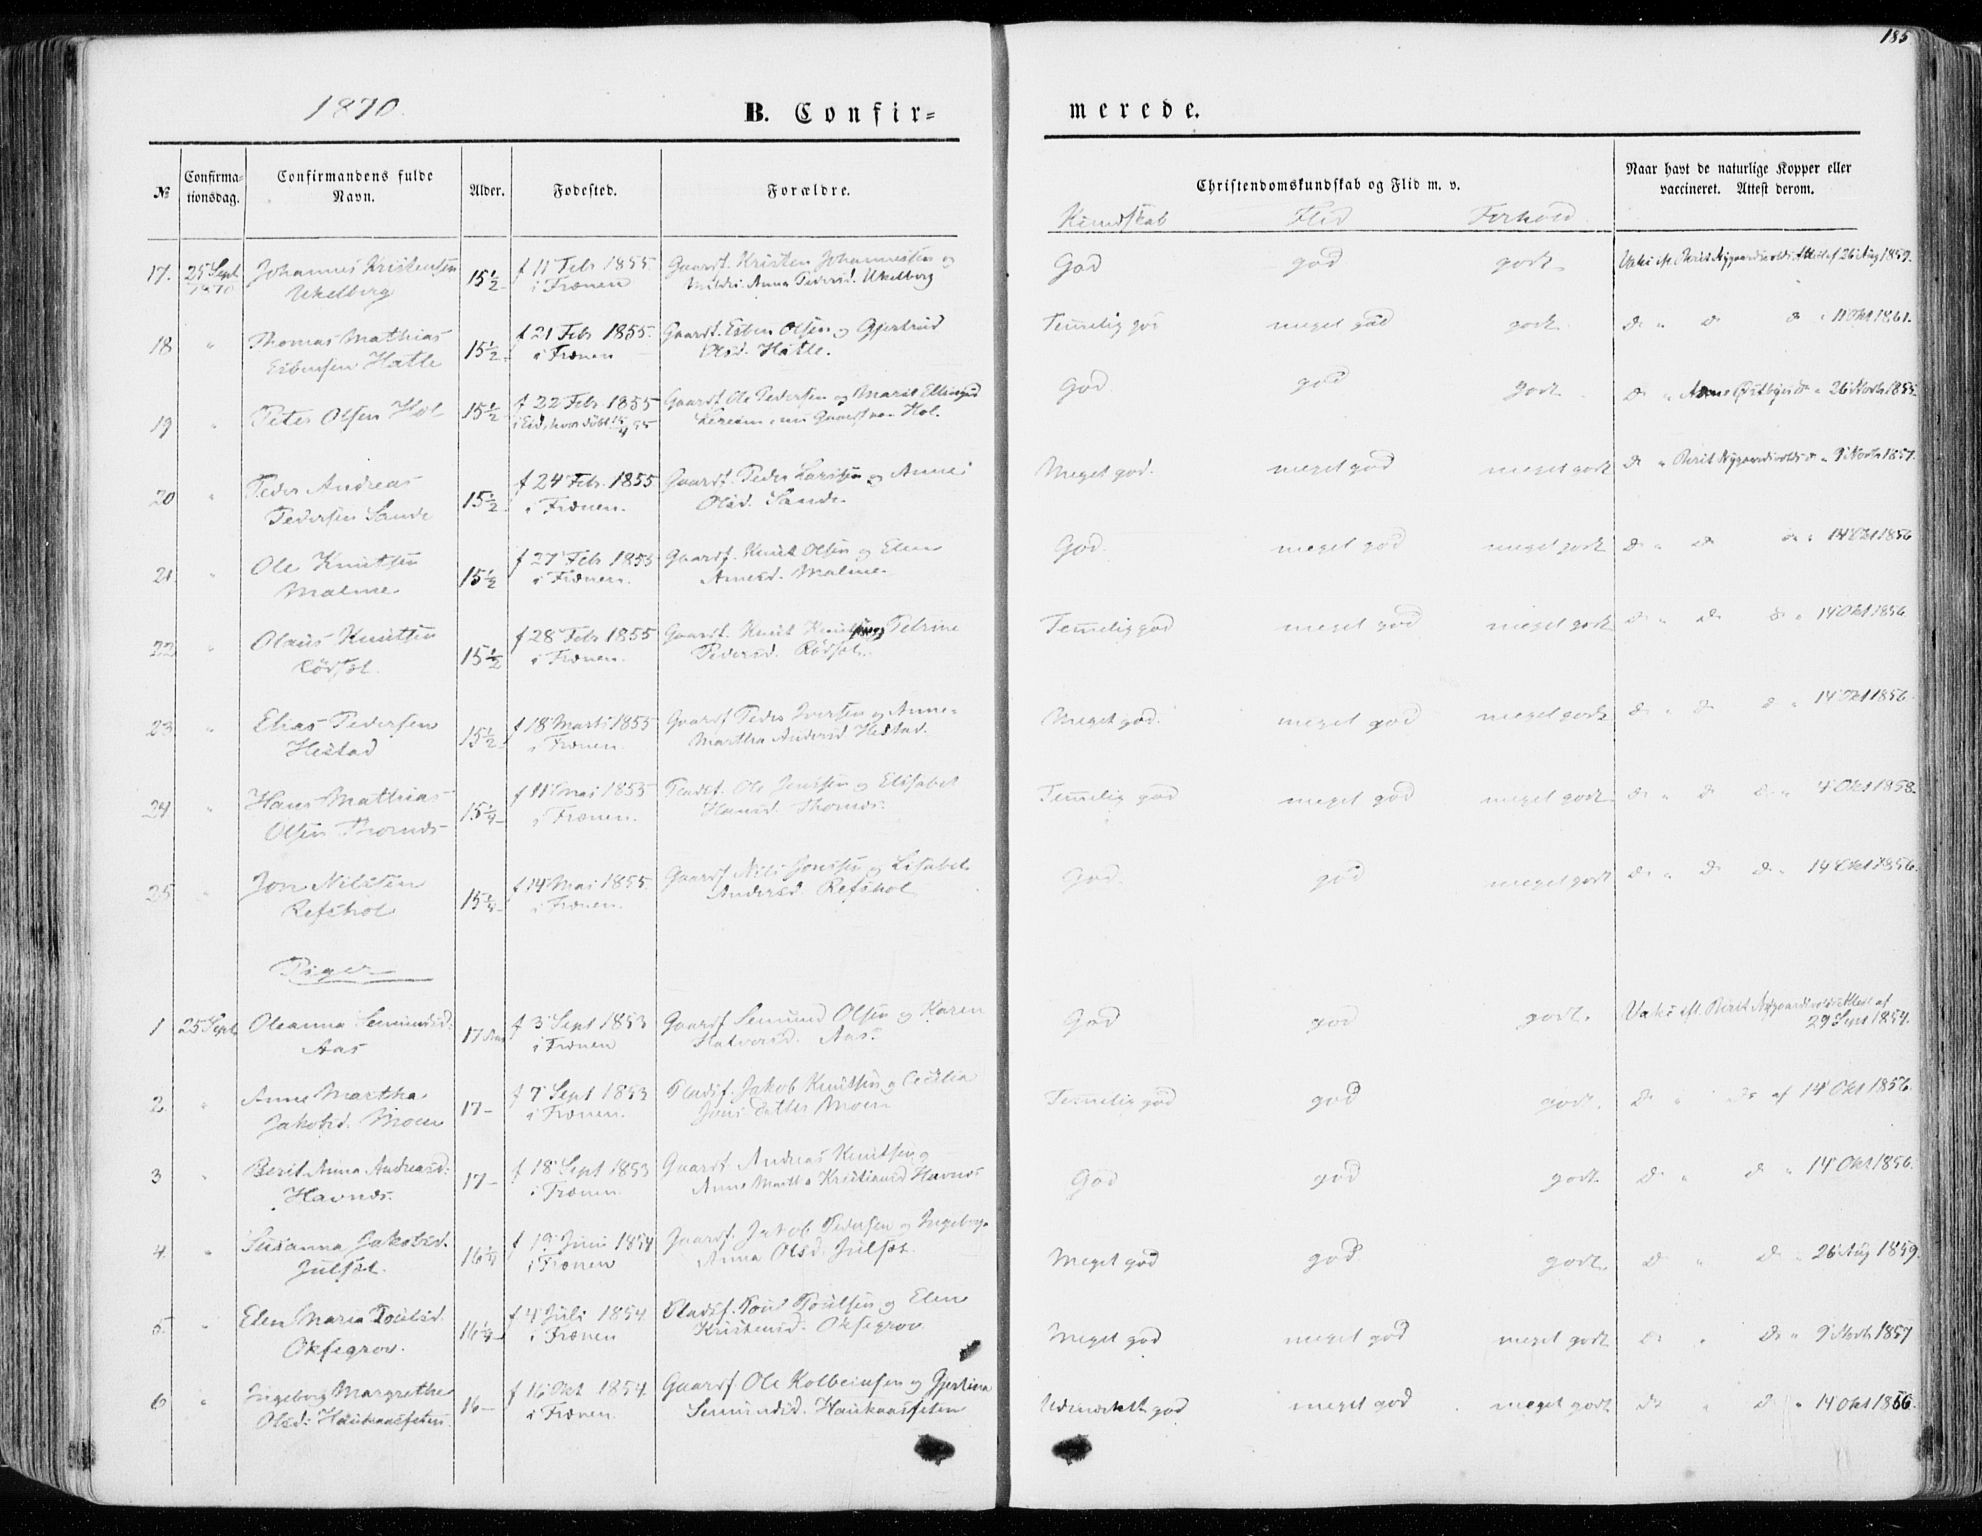 185
1870.
B. Confir-
merede.
№
Confirma-
tionsdag.
Confirmandens fulde
Navn.
Alder.
Fødested.
Forældre.
Christendomskundskab og Flid m. v.
Kundskab Flid Forhold.
Naar havt de naturlige Kopper eller
vaccineret. Attest derom.
17. 25 Sept 1870 Johannes Kristensen
Ukelberg
15½
f 11 Feb 1855.
i Frænen
Gaardf. Kristen Johannessen og
Mildri Anna Pedersd. Ukelberg
God god godt
Vaks. eft. Berit Nygaardsvolds Attest af 26 Aug 1859.
18 " Thomas Mathias
Esbensen Hatle
15½
f 21 Feb 1855.
i Frænen
Gaardf. Esben Olsen og Gjertrud
Olsd. Hatle.
Temmelig god meget god godt
Do " Do Do " 11 Okt 1861.
19 " Peter Olsen Hol
15½
f 22 Feb 1855
i Eid, hvor døbt 15/4 55
Gaardf. Ole Pedersen og Marit Ellingsd
nu Gaardf paa Hol.
God god godt
Do " Anne " 26 Novb 1855
20 " Peder Andreas
Pedersen Sande
15½
f 24 Feb. 1855
i Frænen.
Gaardf. Peder Larssen og Anne
Olsd. Sande
Meget god. meget god meget godt
Do " Berit Nygaardsvolds Do " 9 Novb 1857.
21 " Ole Knutsen
Malme
15½
f 27 Feb 1855
i Frænen.
Gaardf. Knut Olsen og Elen
Arnesd. Malme
God meget god meget godt
Do " Do Do " 14 Okt 1856
22 " Olaus Knutsen
Rødsæt.
15½
f 28 Feb 1855
i Frænen.
Gaardf. Knut Knutsen og Petrine
Pedersd. Rødsæt.
Temmelig god meget god meget godt
Do " Do Do " 14 Okt 1856
23 " Elias Pedersen
Hestad
15½
f 18 Marts 1855
i Frænen.
Gaardf Peder Iversen og Anne
Martha Andersd Hestad.
Meget god. meget god meget godt
Do " Do Do " 14 Okt 1856.
24 " Hans Mathias
Olsen Thornæs
15¼
f 11 Mai 1855
i Frænen.
Pladsf. Ole Jenssen og Elisabet
Hansd. Thornæs.
Temmelig god meget god meget godt
Do " Do Do " 4 Okt 1858.
25 " Jon Nilssen
Refshol
15¼
f 14 Mai 1855.
i Frænen.
Gaardf Nils Jonssen og Lisabet
Andersd Refshol
God. god meget godt
Do " Do Do " 14 Okt 1856.
Piger
1 25 Sept Oleanna Semundsd.
Aas
17 Aar
f 3 Sept 1853
i Frænen
Gaardf Semund Olsen og Karen
Halvorsd. Aas.
God god godt.
Vaks. eft. Berit Nygaardsvolds Attest af
29 Sept 1854.
2. " Anne Martha
Jakobsd. Moen
17
f 7 Sept 1853
i Frænen.
Pladsf. Jakob Knutsen og Cecilia
Jonsdatter Moen
Temmelig god god godt.
Do " Do af 14 Okt 1856.
3 " Berit Anna Andreasd.
Havnæs.
17
f 18 Sept 1853
i Frænen
Gaardf Andreas Knutsen og
Anne Martha Kristiansd Havnæs
God god godt.
Do " Do " 14 Okt 1856.
4. " Susanna Jakobsd.
Julsæt.
16¼
f 19 Juni 1854
i Frænen
Gaardf. Jakob Pedersen og Ingeborg
Anna Olsd. Julsæt.
Meget god god godt.
Do " Do " 26 Aug 1859.
5. " Elen Maria Poulsd.
Oksegrov.
16¼
f 4 Juli 1854.
i Frænen
Pladsf. Poul Poulsen og Elen
Kristensd. Oksegrov
Meget god meget god meget godt
Do " Do " 9 Novb 1857
6 " Ingeborg Margrethe
Olsd. Haukaassæten.
16
f 16 Okt 1854.
i Frænen.
Gaardf. Ole Kolbeinsen og Gjertina
Semundsd. Haukaassæten
Udmærket god meget god meget godt
Do " Do " 14 Okt 1856.